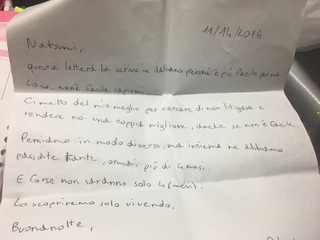 11/14/2016
Natsumi,
questa lettera la scrivo in italiano perché è più facile per me
Lo so, non è facile capirmi.
Ci metto del mio meglio per cercare di non litigare e
rendere noi una coppia migliore, anche se non è facile
Pensiamo in modo diverso, ma insieme ne abbiamo
passate tante, ormai più di 4 mesi.
E forse non saranno solo 4 (mesi).
Lo scopriremo solo vivendo.
Buonanotte,